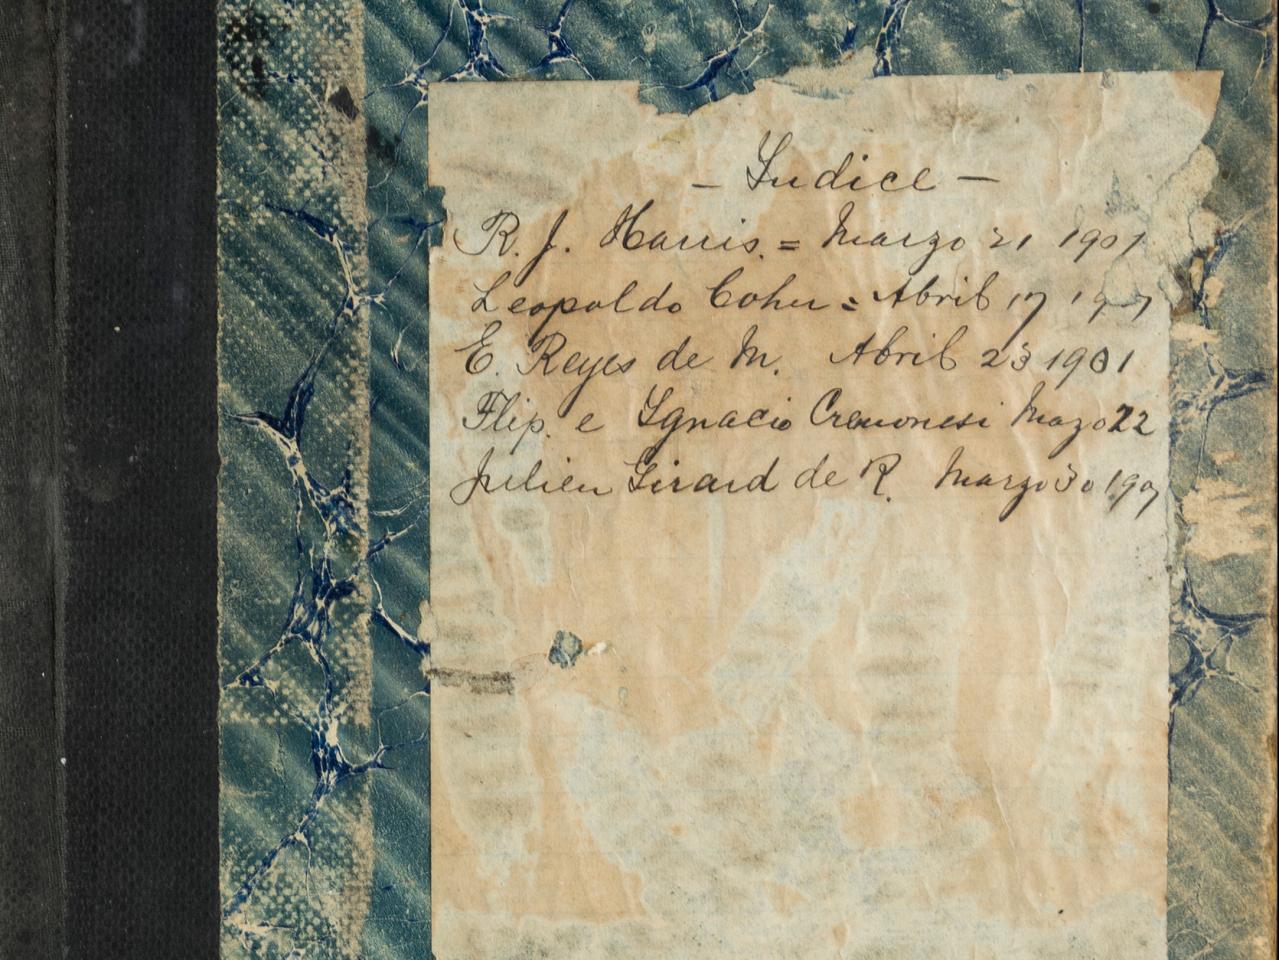 - Indice -
R. J. Harris. = Marzo 21 1901
Leopoldo Cohen = Abril 17 1907
E. Reyes de M. Abril 23 1901
Flip. e Ignacio Cremonesi Mazo 22
Julien Girard de R. Marzo 30 190